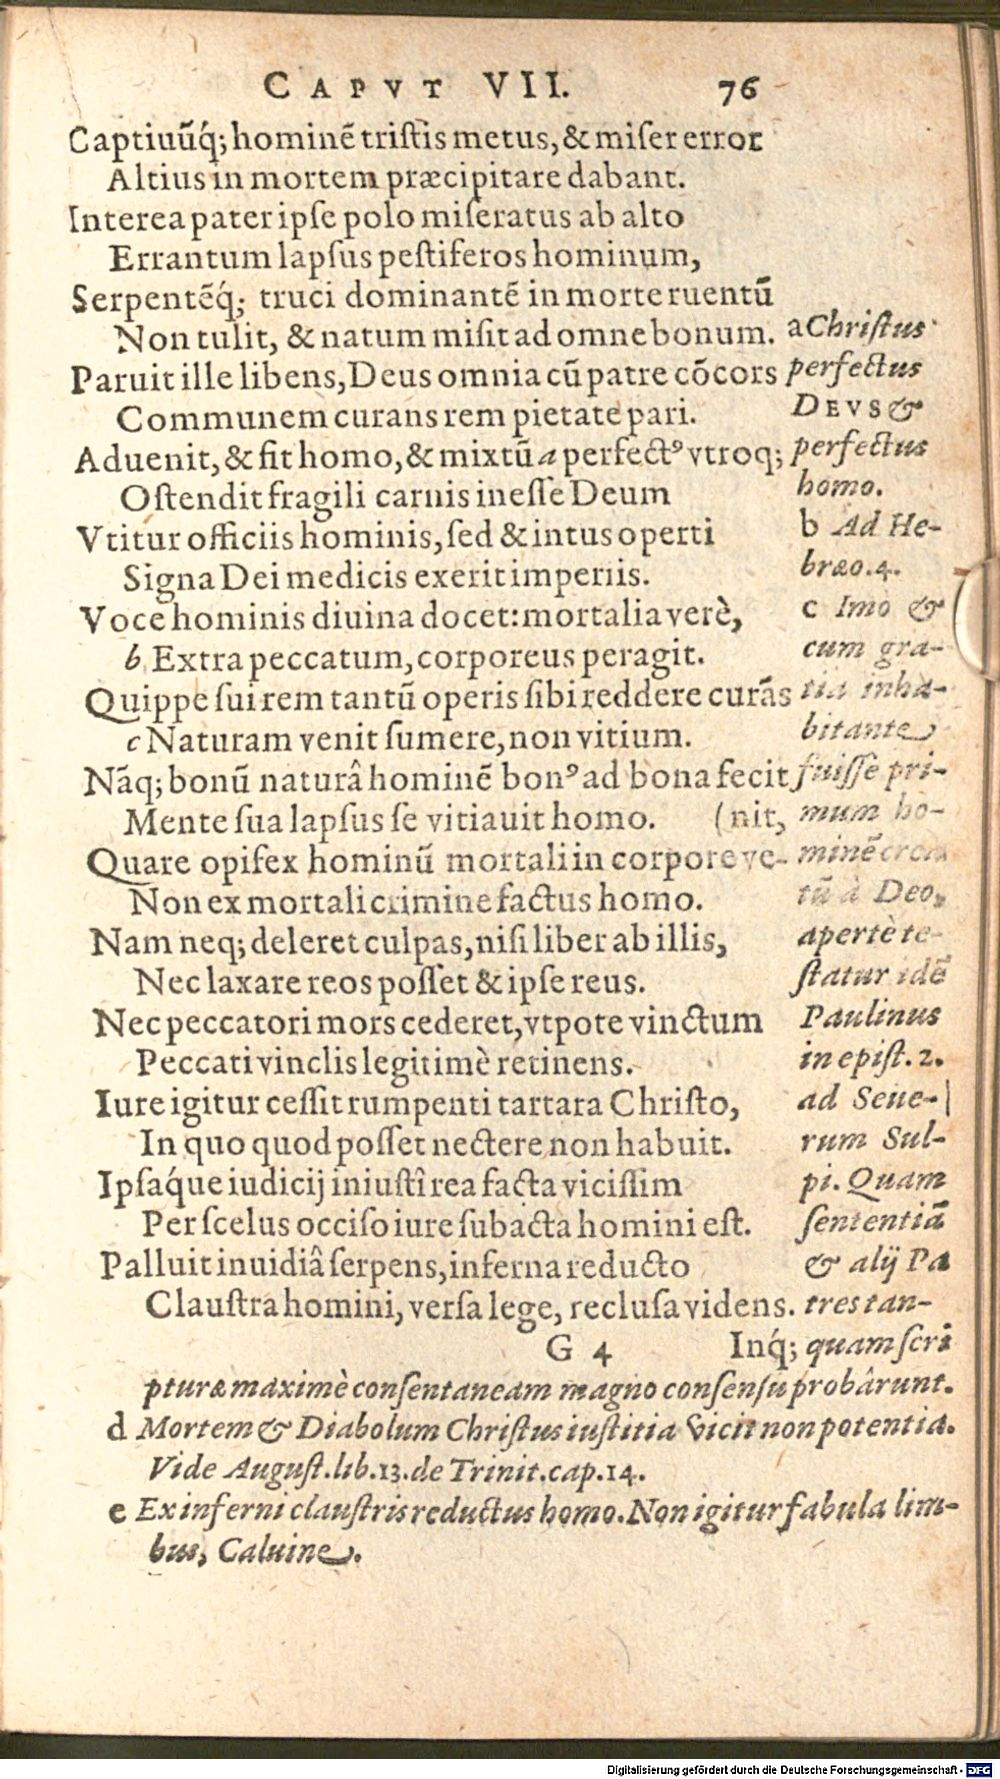 CAPVT VII. 76
Captiuũq́; hominẽ tristis metus, & miser error
Altius in mortem præcipitare dabant.
Interea pater ipse polo miseratus ab alto
Errantum lapsus pestiferos hominum,
Serpentẽq́; truci dominantẽ in morte ruentũ
Non tulit, & natum misit ad omne bonum.
Paruit ille libens, Deus omnia cũ patre cõcors
Communem curans rem pietate pari.
Aduenit, & fit homo, & mixtũ a perfectꝰ vtroq;
Ostendit fragili carnis inesse Deum
Vtitur officiis hominis, sed & intus operti
Signa Dei medicis exerit imperiis.
Voce hominis diuina docet: mortalia verè,
b Extra peccatum, corporeus peragit.
Quippe sui rem tantũ operis sibi reddere curãs
c Naturam venit sumere, non vitium.
Nãq; bonũ naturâ hominẽ bonꝰ ad bona fecit
Mente sua lapsus se vitiauit homo. (nit,
Quare opifex hominũ mortali in corpore ve-
Non ex mortali crimine factus homo.
Nam neq; deleret culpas, nisi liber ab illis,
Nec laxare reos posset & ipse reus.
Nec peccatori mors cederet, vtpote vinctum
Peccati vinclis legitimè retinens.
Iure igitur cessit rumpenti tartara Christo,
In quo quod posset nectere non habuit.
Ipsáque iudicij iniustî rea facta vicissim
Per scelus occiso iure subacta homini est.
Palluit inuidiâ serpens, inferna reducto
Claustra homini, versa lege, reclusa videns.
G 4 Inq́;
a Christus
perfectus
DEVS &
perfectus
homo.
b Ad He-
bræo. 4.
c Imo &
cum gra-
tia inha-
bitante
fuisse pri-
mum ho-
minẽ crea
tũ à Deo,
apertè te-
statur idẽ
Paulinus
in epist. 2.
ad Seue-
rum Sul-
pi. Quam
sententiã
& alij Pa
tres tan-
quam scri
pturæ maximè consentaneam magno consensu probârunt.
d Mortem & Diabolum Christus iustitia vicit non potentia.
Vide August. lib. 13. de Trinit. cap. 14.
e Ex inferni claustris reductus homo. Non igitur fabula lim-
bus, Caluine.
Digitalisierung gefördert durch die Deutsche Forschungsgemeinschaft - DFG